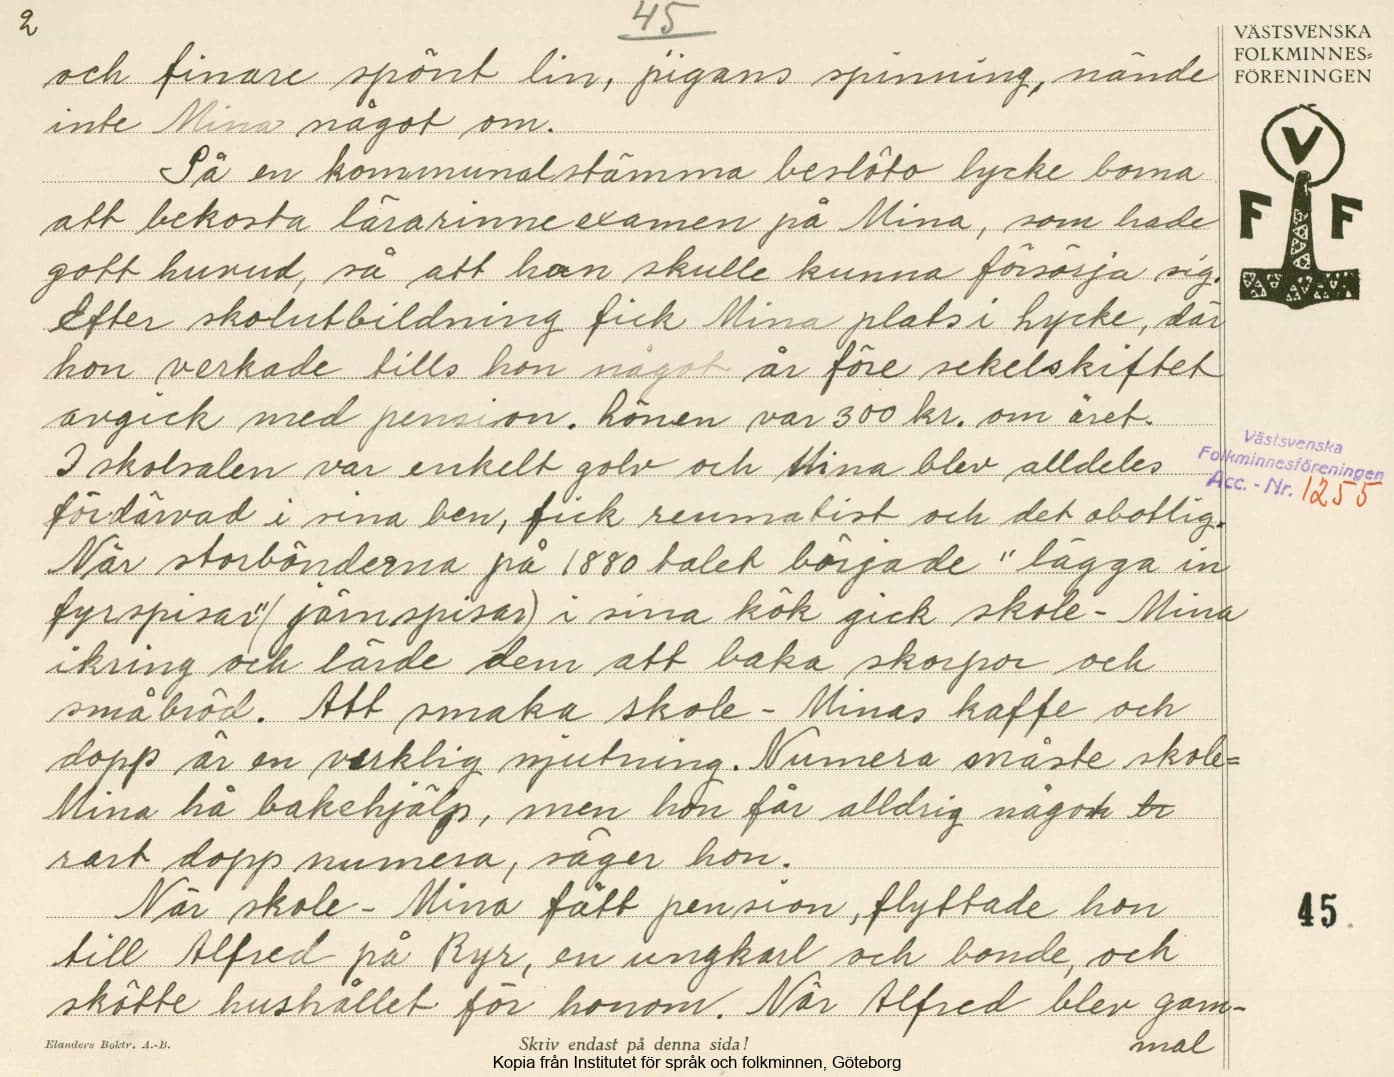 2
45
och finare spönt lin, pigans spinning, nände
inte Mina något om.
På en kommunalstämma beslöto lycke borna
att bekosta lärarinneexamen på Mina, som hade
gott huvud, så att hon skulle kunna försörja sig.
Efter skolutbildning fick Mina plats i Lycke, där
hon verkade tills hon något år före sekelskiftet
avgick med pension. Lönen var 300 kr. om året.
I skolsalen var enkelt golv och Mina blev alldeles
fördärvad i sina ben, fick reumatist och det obotlig.
När storbönderna på 1880 talet började "lägga in
fyrspisar" (järnspisar) i sina kök gick skole- Mina
ikring och lärde dem att baka skorpor och
småbröd. Att smaka skole - Minas kaffe och
dopp är en verklig njutning. Numera måste skole=
Mina hå bakehjälp, men hon får alldrig något
rart dopp numera, säger hon.
När skole - Mina fått pension, flyttade hon
till Alfred på Ryr, en ungkarl och bonde, och
skötte hushållet för honom. När Alfred blev gam-
mal
VÄSTSVENSKA
FOLKMINNES=
FÖRENINGEN
V
F F
Västsvenska
Folkminnesföreningen
Acc. - Nr. 1255
45
Elanders Boktr. A.-B.
Skriv endast på denna sida!
Kopia från Institutet för språk och folkminnen, Göteborg